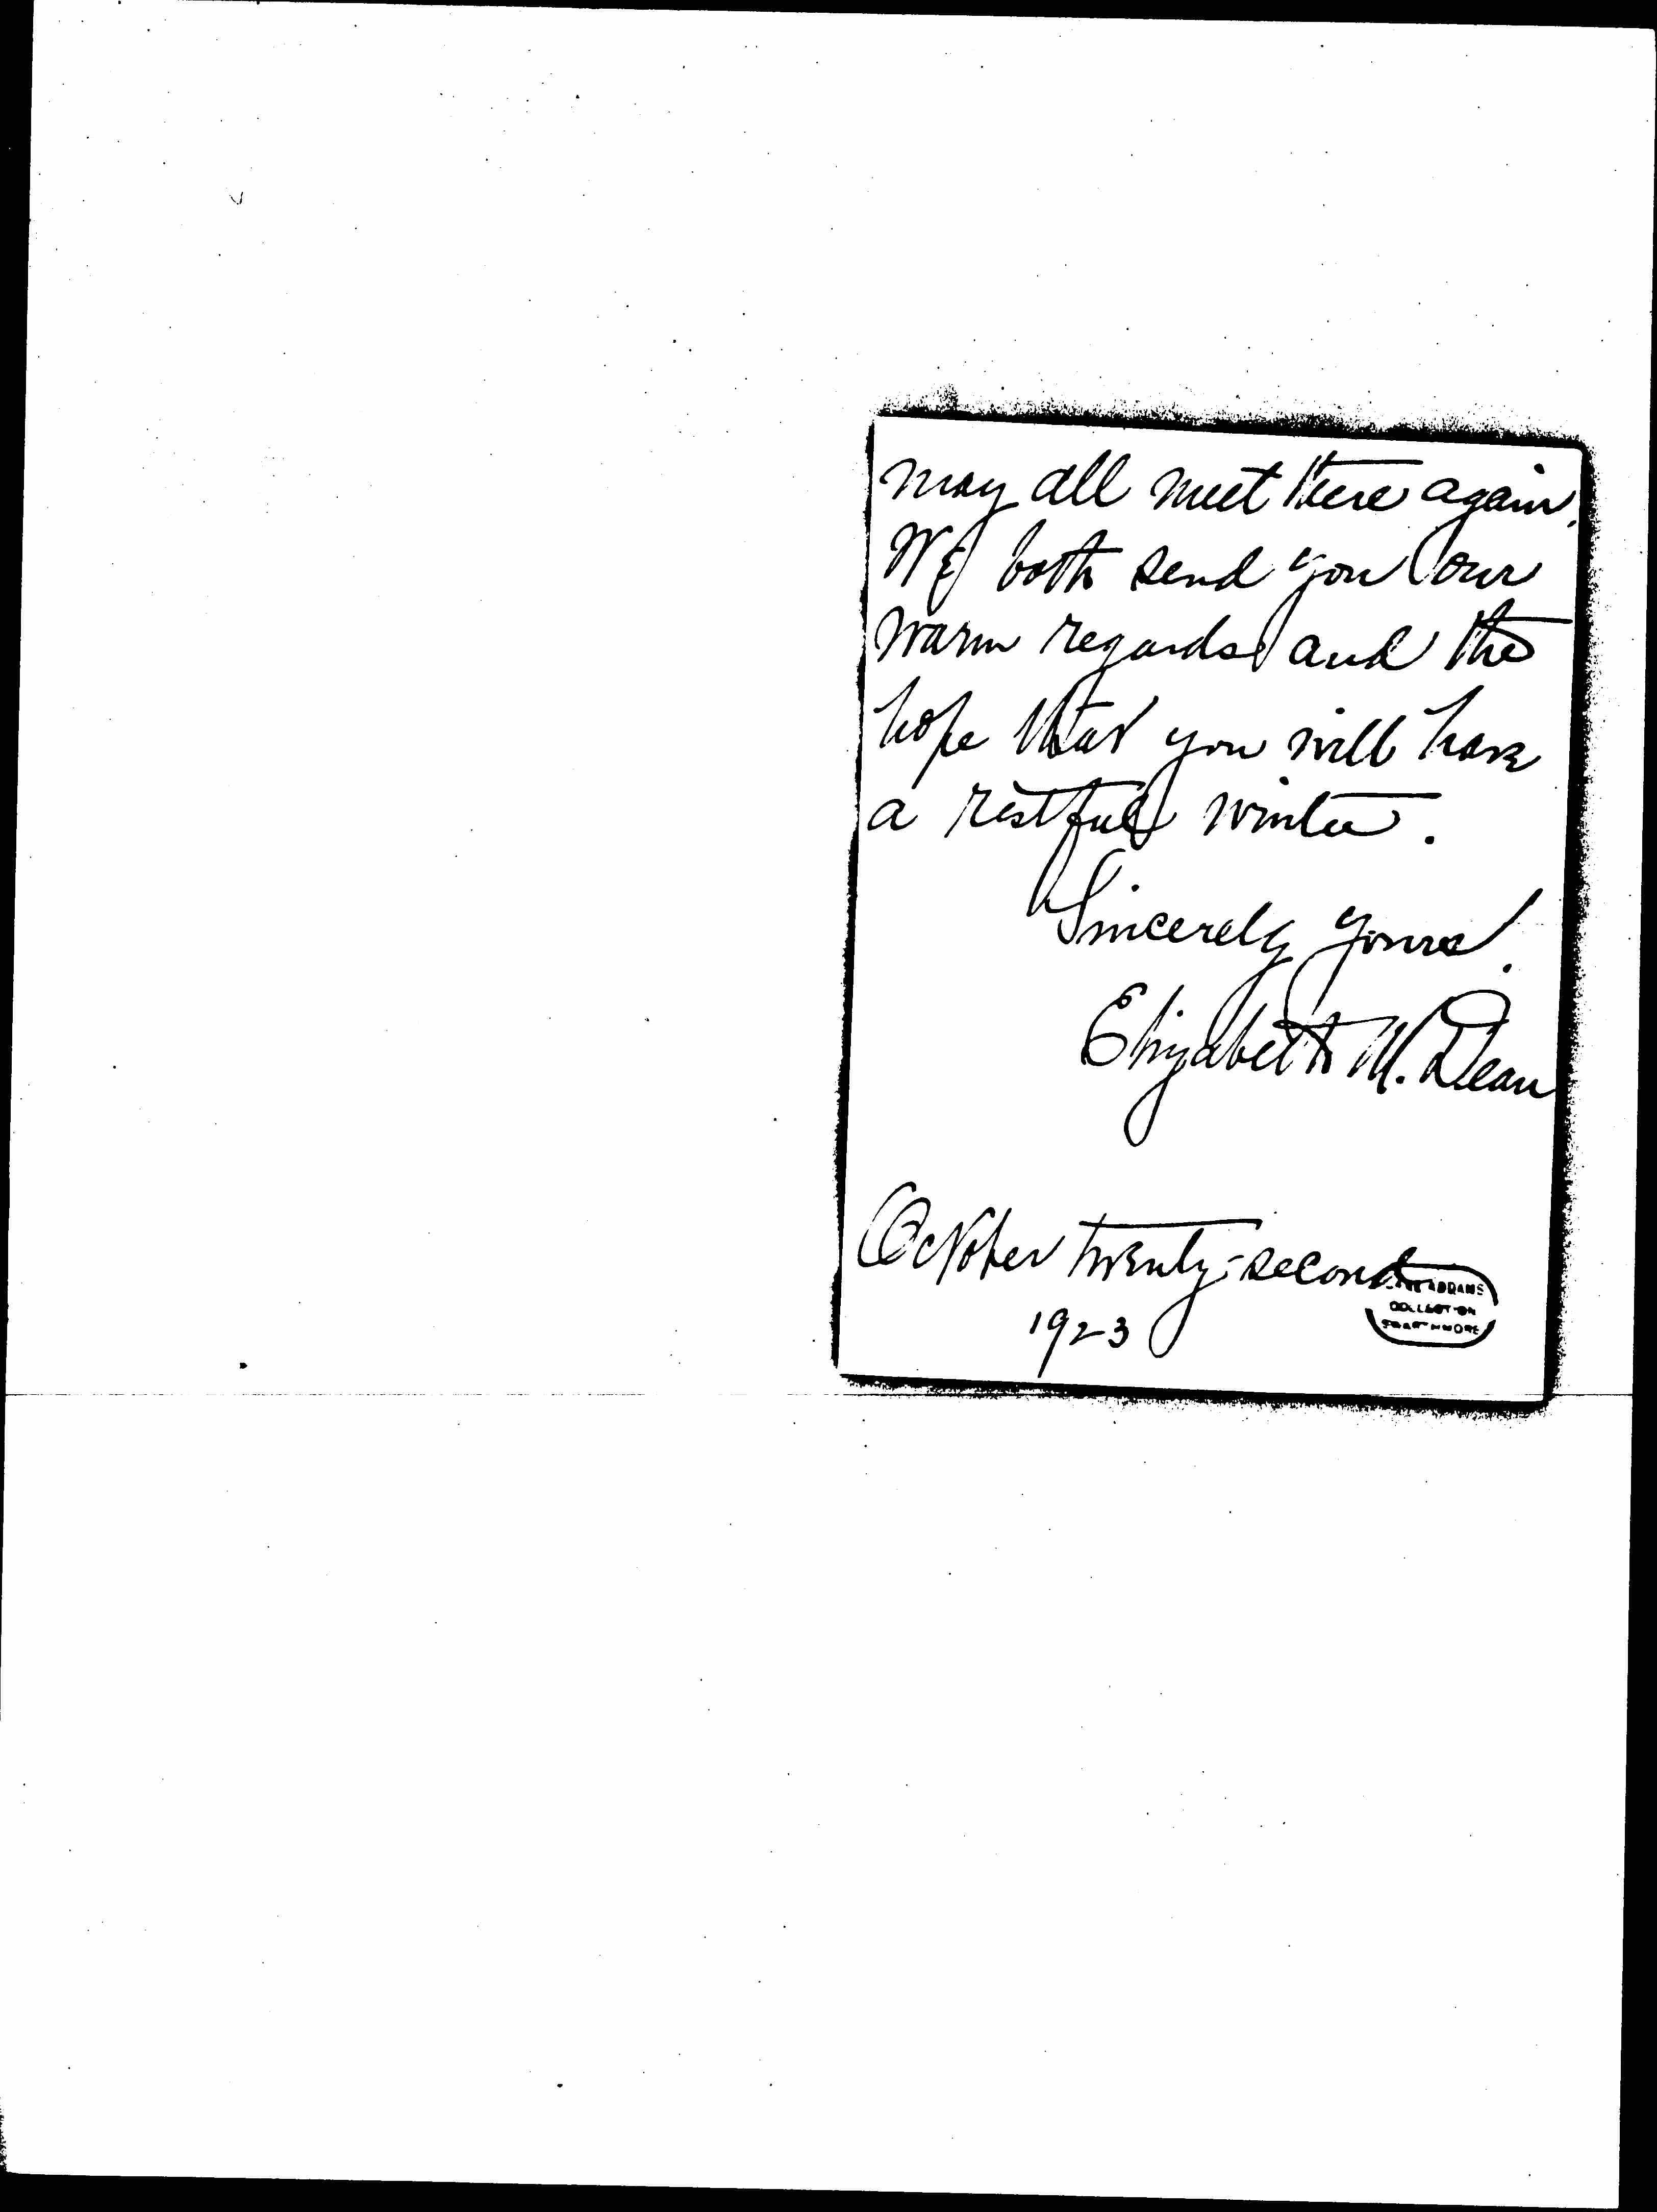 may all meet there again.
We both send you our
warm regards and the
hope that you will have
a restful winter.
Sincerely yours.
Elizabeth M. Dean
October twenty-second
1923
JANE ADDAMS
COLLECTION
SWARTHMORE